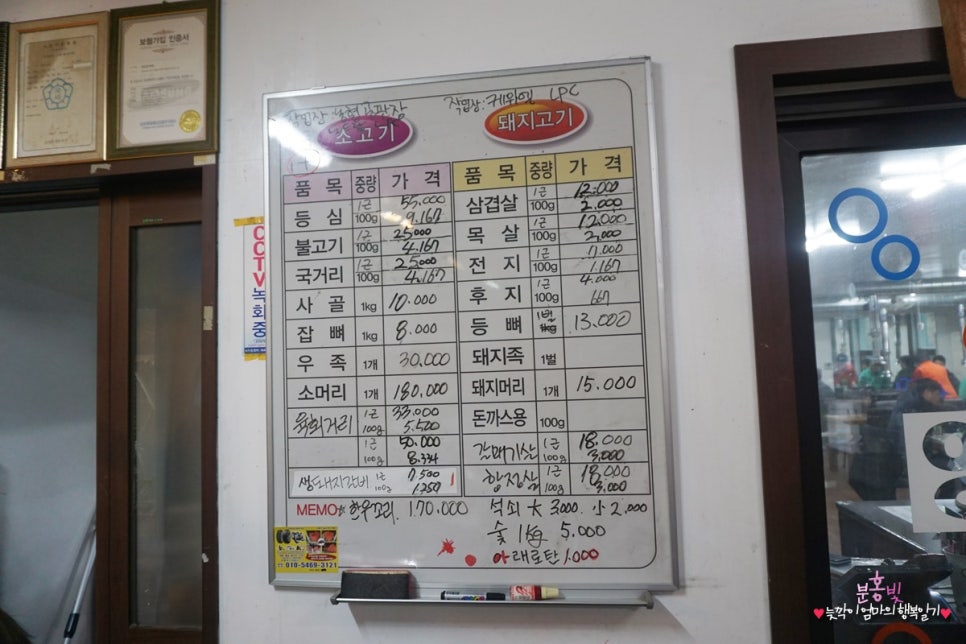 보험가입 인증서
CCTV 녹화중
작업장: 케위엔 LPC
소고기
돼지고기
품목 중량 가격
등심 1근 55.000
100g 9.167
불고기 1근 25.000
100g 4.167
국거리 1근 25.000
100g 4.167
사골 1kg 10.000
잡뼈 1kg 8.000
우족 1개 30.000
소머리 1개 180.000
육회거리 1근 33.000
100g 5.500
1근 50.000
100g 8.334
생돼지갈비 1근 7.500
100g 1.250
품목 중량 가격
삼겹살 1근 12.000
100g 2.000
목살 1근 12.000
100g 2.000
전지 1근 7.000
100g 1.167
후지 1근 4.000
100g 667
등뼈 1벌 13.000
돼지족 1벌
돼지머리 1개 15.000
돈까스용 100g
갈매기살 1근 18.000
100g 3.000
항정살 1근 18.000
100g 3.000
MEMO☆ 한우꼬리. 170.000
석쇠 大 3000. 小 2,000
숯 1매 5.000
아래로탄 1.000
010-5469-3121
분홍빛
♥늦깍이 엄마의 행복일기♥